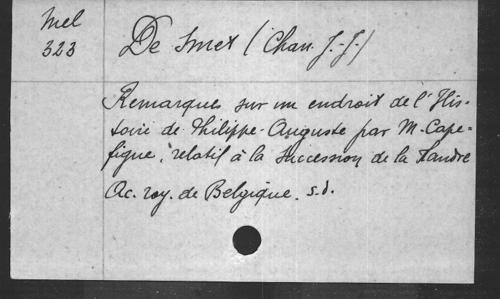 Mel
323
De Smet (Chan. J.-J.)
Remarques sur un endroit de l'His-
toire de Philippe-Auguste par M. Cape-
figue, relatif à la succession de la Flandre
Ac. roy. de Belgique. s.d.